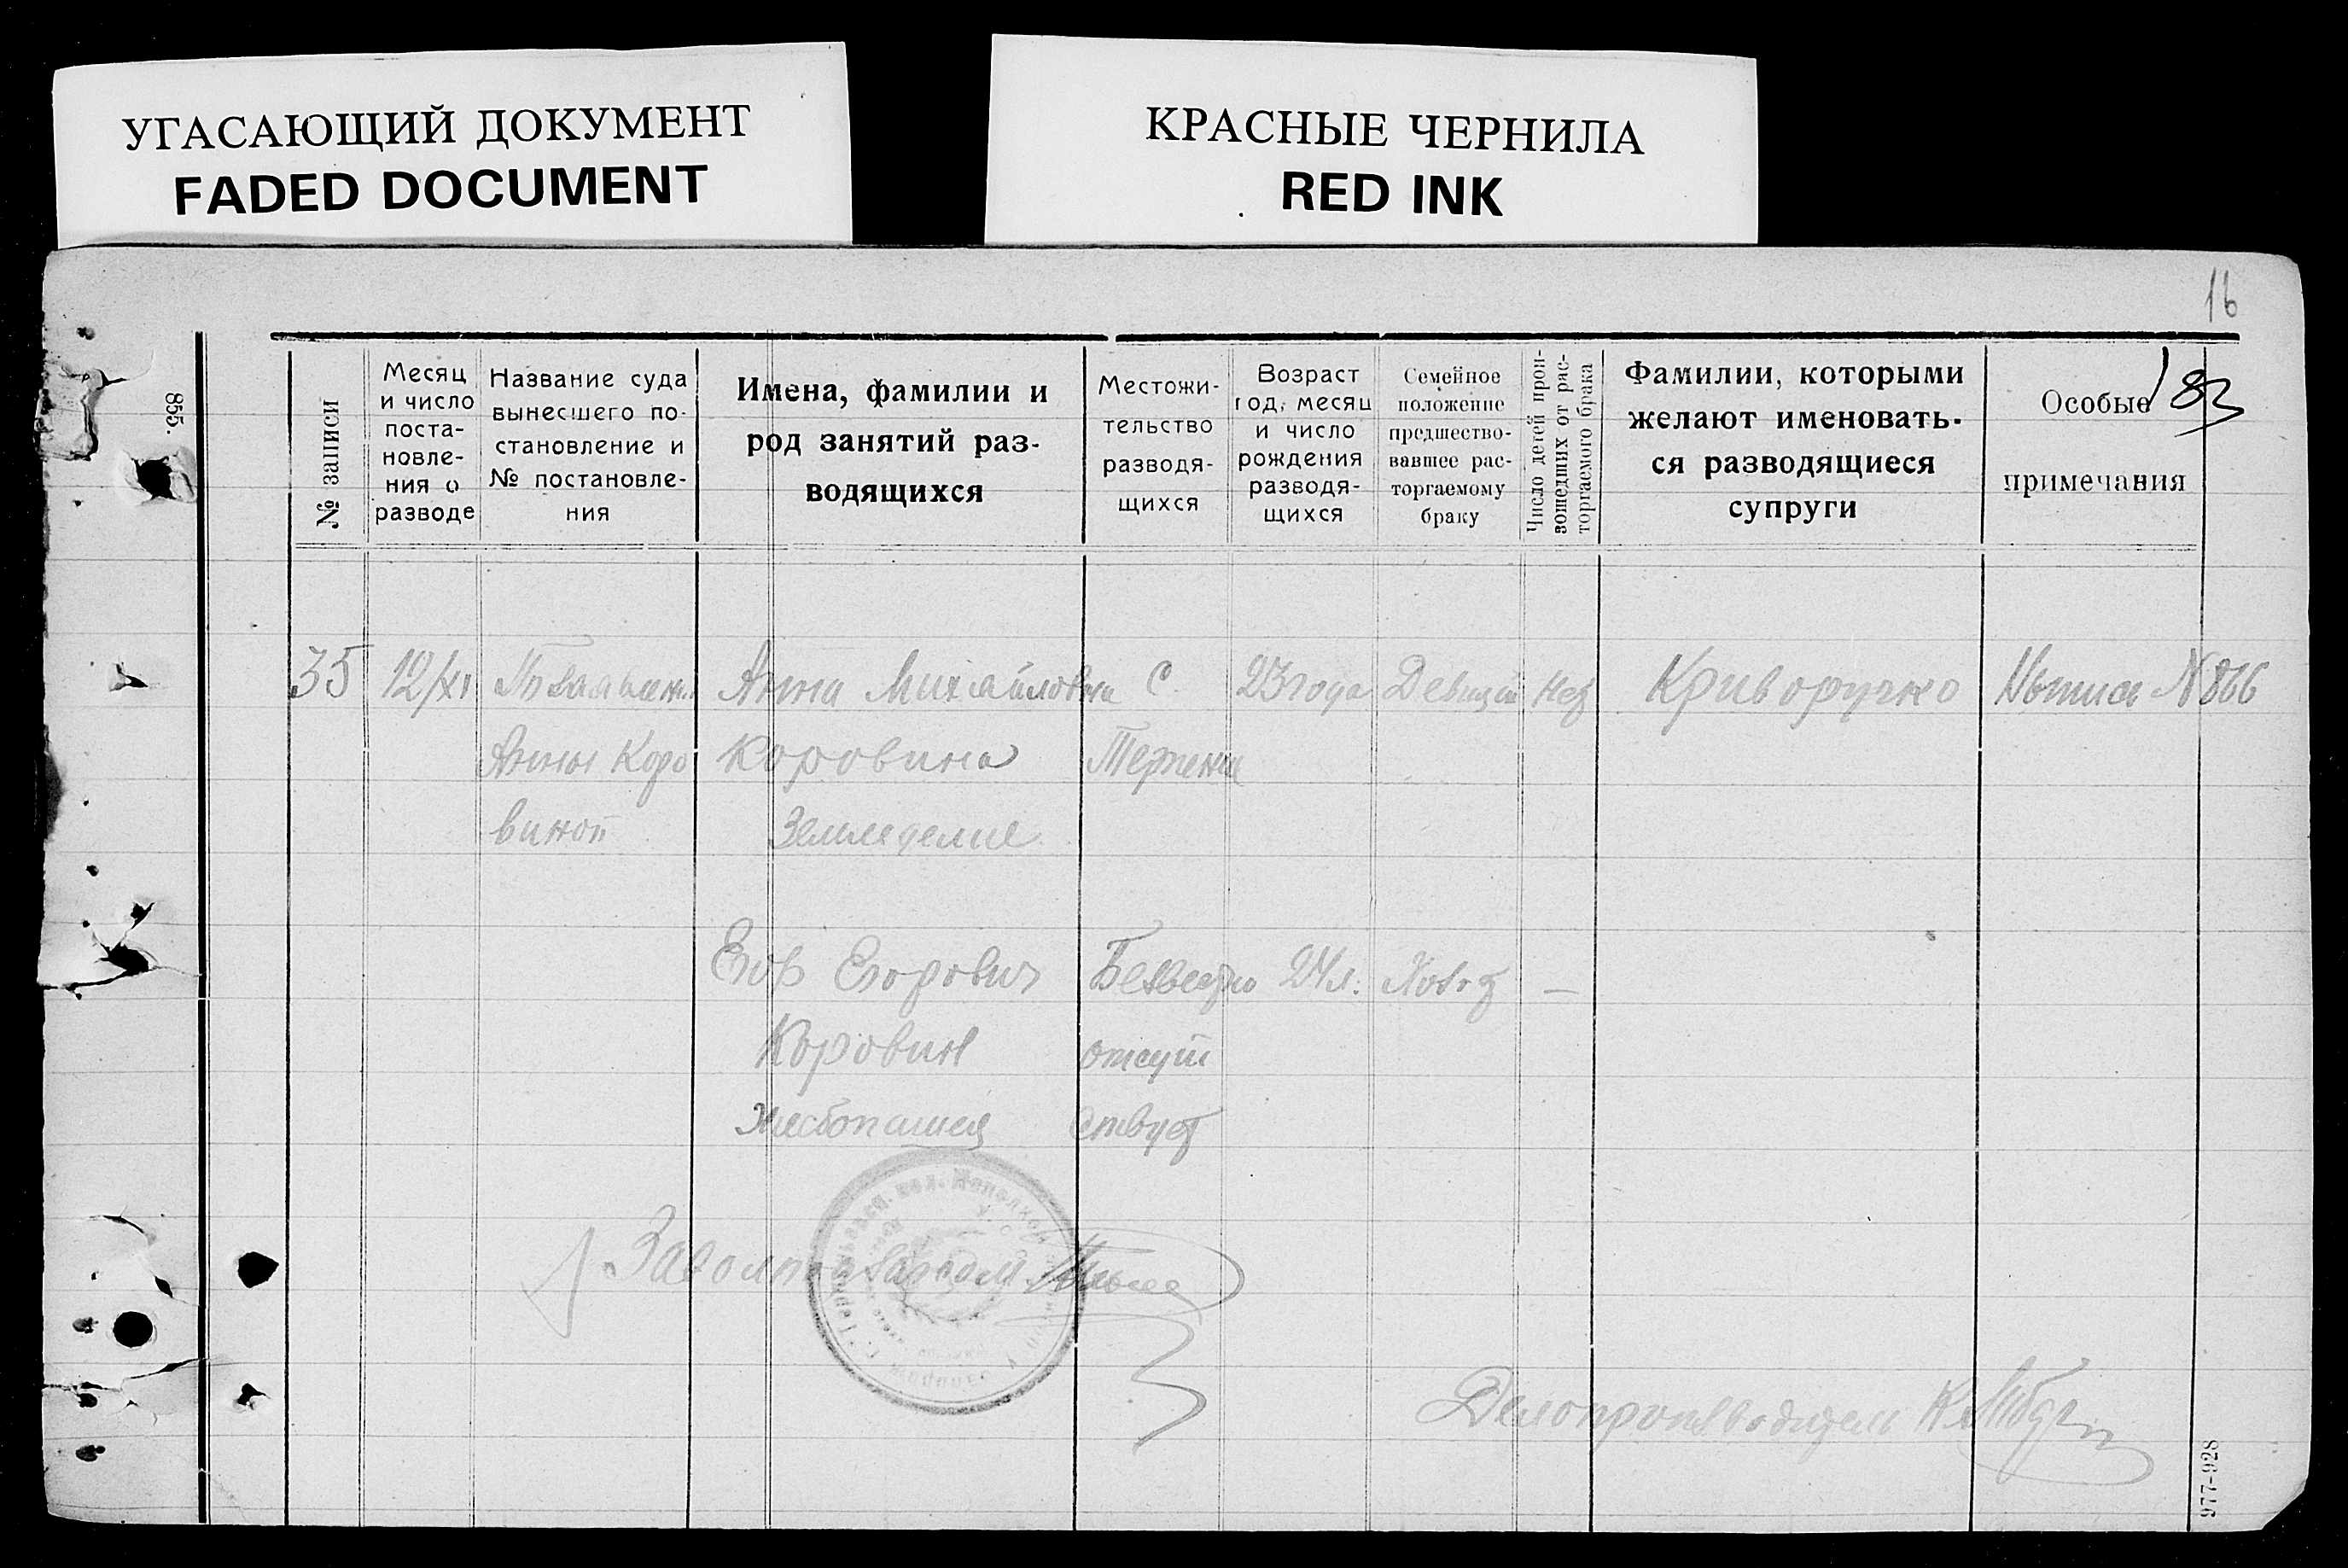 УГАСАЮЩИЙ ДОКУМЕНТ
FADED DOCUMENT
КРАСНЫЕ ЧЕРНИЛА
RED INK
16
183
855.
№ записи
Месяц
и число
поста-
новле-
ния о
разводе
Название суда
вынесшего по-
становление и
№ постановле-
ния
Имена, фамилии и
род занятий раз-
водящихся
Местожи-
тельство
разводя-
щихся
Возраст
год, месяц
и число
рождения
разводя-
щихся
Семейное
положение
предшество-
вавшее рас-
торгаемому
браку
Число детей прои-
зошедших от рас-
торгаемого брака
Фамилии, которыми
желают именовать-
ся разводящиеся
супруги
Особые
примечания
35
12/XI
Анны Коро
виной
Анна Михайловна
Коровина
Земледелие
С.
23 года
Девица
Нет
Криворучко
№ 866
Егор Егорович
Коровин
Хлебопашец
Безвестно
отсут
ствует
24 л.
Холост
—
Делопроизводитель
977-928